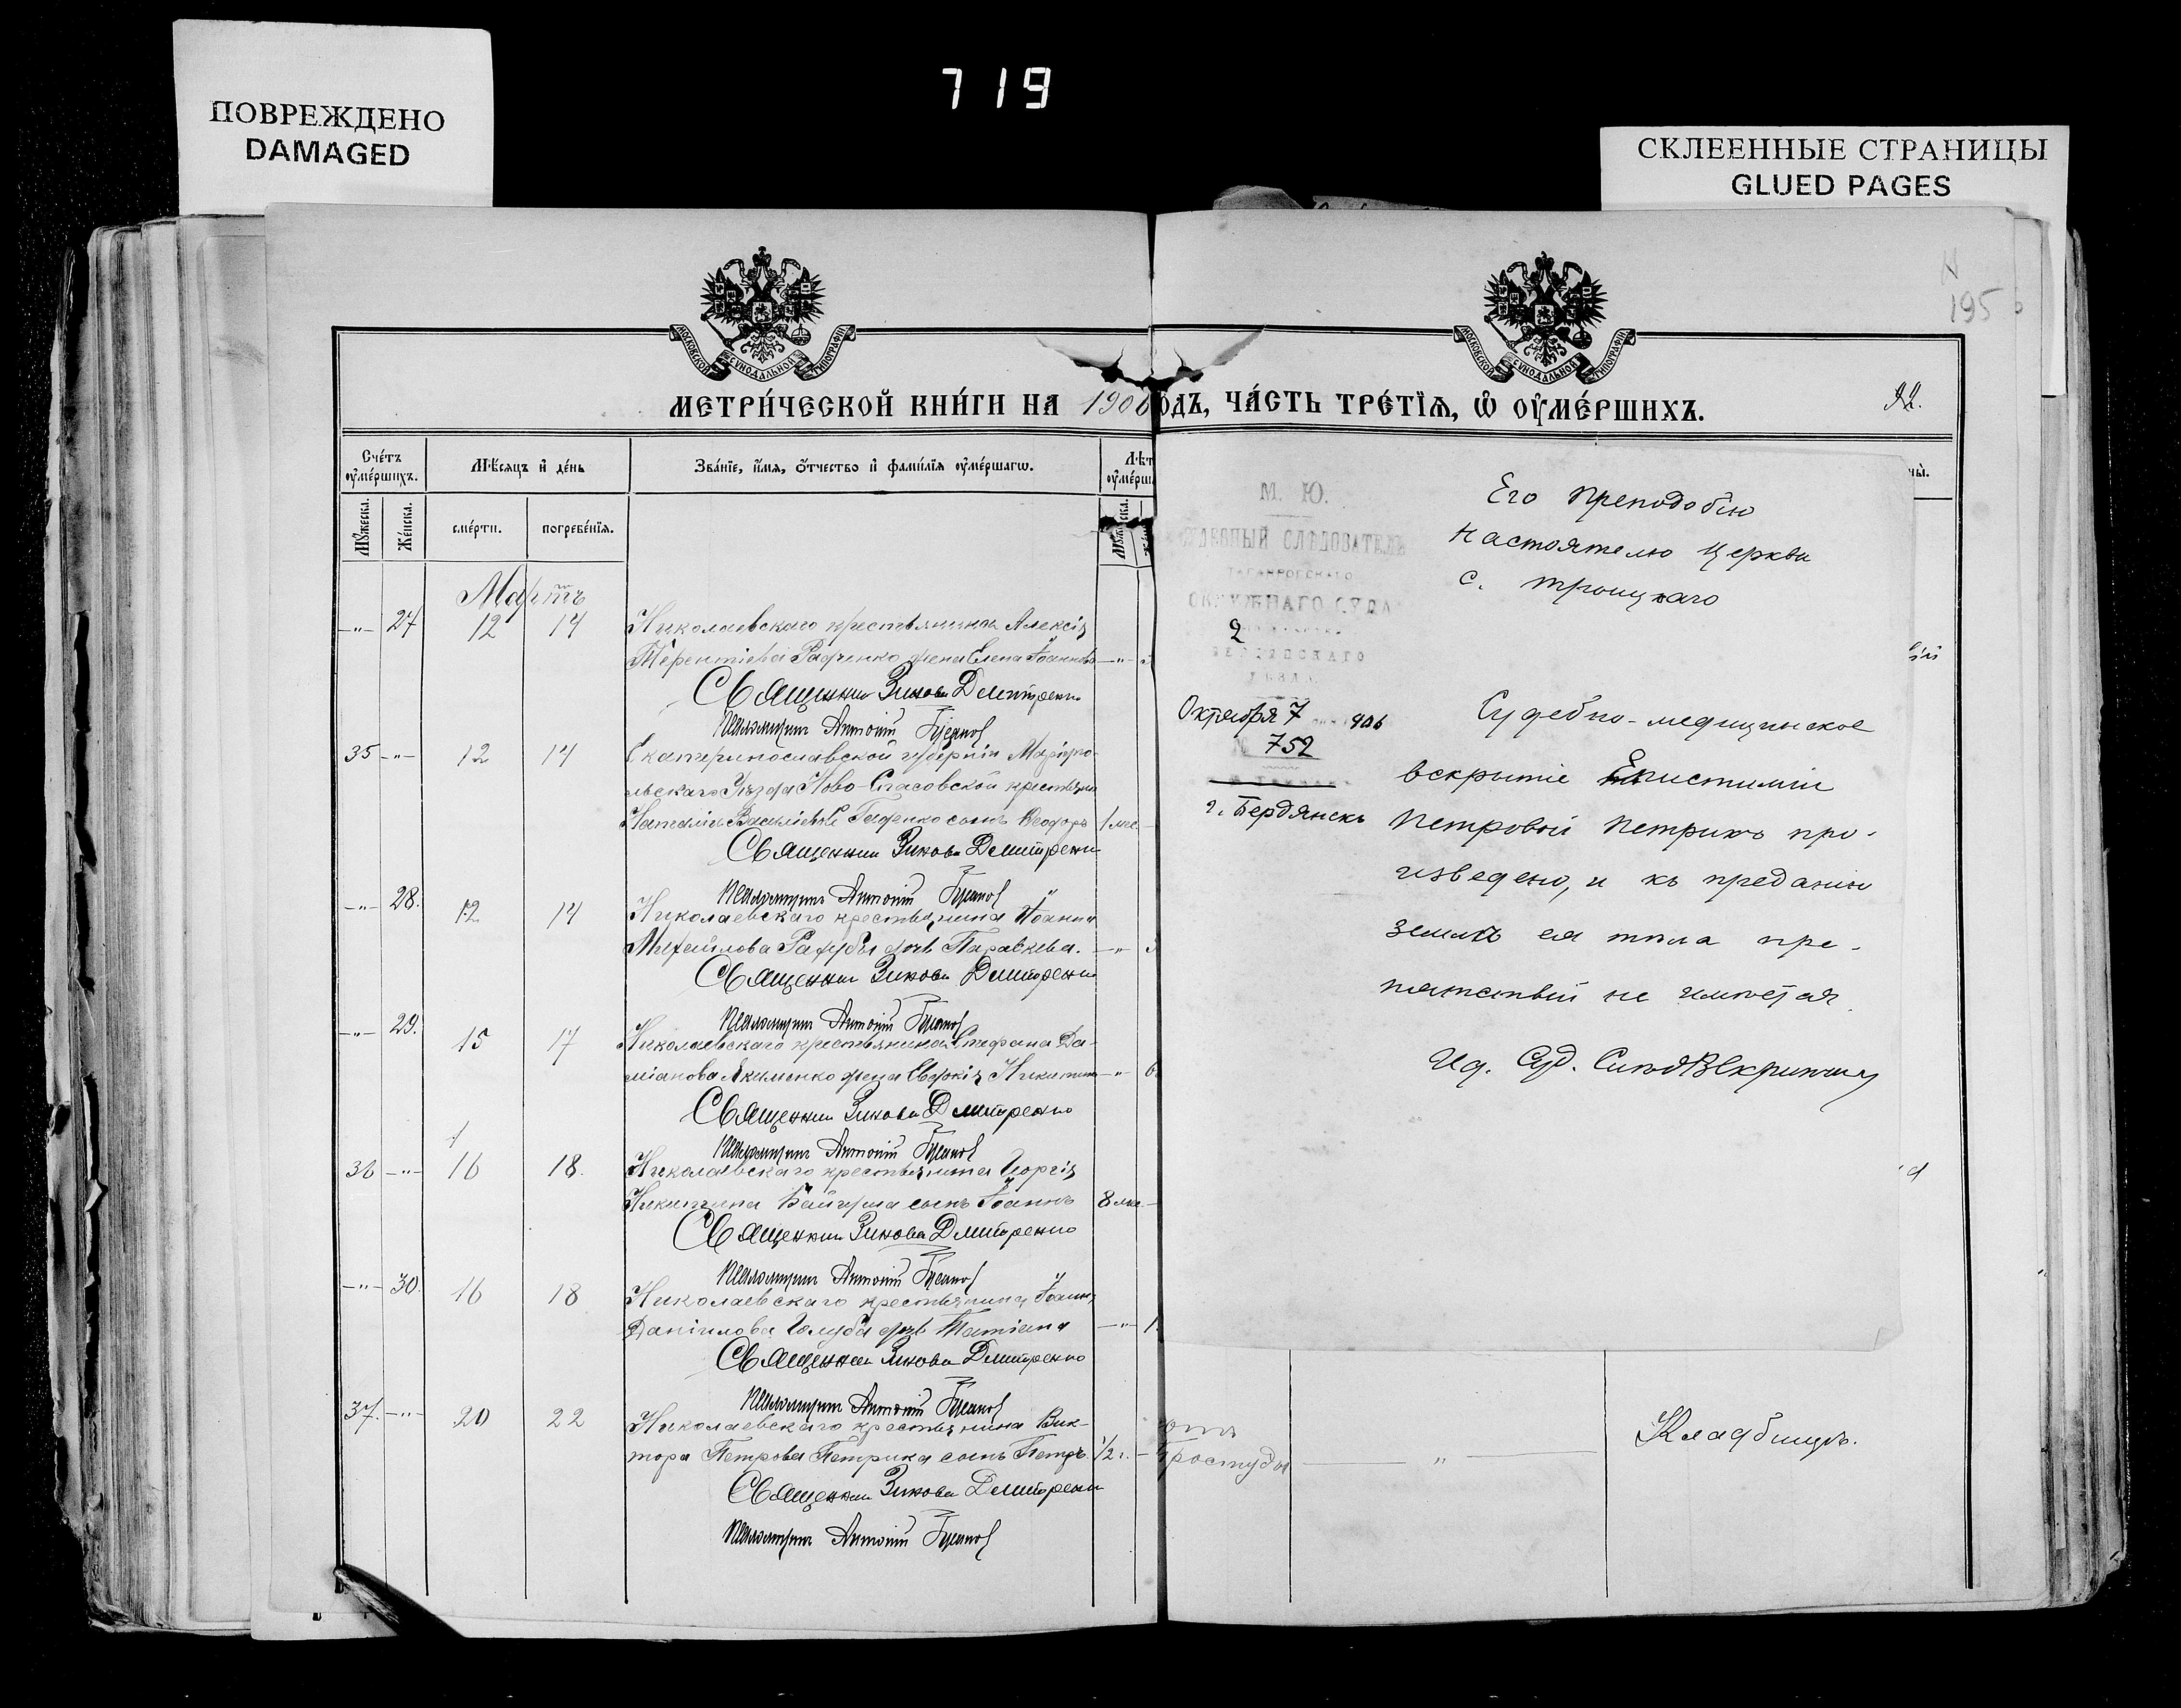 719
ПОВРЕЖДЕНО
DAMAGED
СКЛЕЕННЫЕ СТРАНИЦЫ
GLUED PAGES
195
МОСКОВСКОЙ СУНОДАЛЬНОЙ ТИПОГРАФІИ
МОСКОВСКОЙ СУНОДАЛЬНОЙ ТИПОГРАФІИ
МЕТРИ́ЧЕСКОЙ КНИ́ГИ НА 1906
ОДЪ, ЧА́СТЬ ТРЕ́ТІѦ, Ѽ ОУ҆МЕ́РШИХЪ.
Сче́тъ оу҆ме́ршихъ.
Мѣ́сѧцъ и҆ де́нь
Зва́нїе, и҆́мѧ, ѻ҆́тчество и҆ фами́лїѧ оу҆ме́ршагѡ.
Лѣт
оу҆ме́рш
Му́жеска.
Же́нска.
сме́рти.
погребе́нїѧ.
Мартъ
-"- 24 12 14 Николаевскаго крестьянина Алексія
Терентіева Радченко жена Елена Іоаннова -"-
Священник Зиновій Дмитренко
Псаломщик Антоній
35 -"- 12 14 Екатеринославской губерніи Маріупо-
льскаго Уѣзда Ново-Спасовской крестьян
Наталіи Васильевой Гаденко сынъ Ѳеодоръ 1 мѣс.
Священник Зиновій Дмитренко
Псаломщик Антоній
-"- 28. 12 14 Николаевскаго крестьянина Іоанна
Михайлова дочь Параскева. -"-
Священник Зиновій Дмитренко
Псаломщик Антоній
-"- 29. 15 17 Николаевскаго крестьянина Стефана Да-
міанова Якименко жена Евдокія Никитина -"- 6
Священник Зиновій Дмитренко
Псаломщик Антоній
36 -"- 16 18. Николаевскаго крестьянина Георгія
Никитина сынъ Іоаннъ 8 мѣс.
Священник Зиновій Дмитренко
Псаломщик Антоній
-"- 30. 16 18 Николаевскаго крестьянина Іоанна
Даніилова Голуба дочь Татіана -"- 1
Священник Зиновій Дмитренко
Псаломщик Антоній
37. -"- 20 22 Николаевскаго крестьянина Вик-
тора Петрова Петрика сынъ Петръ. 1/2 г.
Священник Зиновій Дмитренко
Псаломщик Антоній
отъ
простуды
"
Кладбищѣ.
М. Ю.
СУДЕБНЫЙ СЛѢДОВАТЕЛЬ
ТАГАНРОГСКАГО
ОКРУЖНАГО СУДА
2
БЕРДЯНСКАГО
УѢЗДА
Октября 7 1906
№ 752
г. Бердянскъ
Его Преподобію
Настоятелю Церкви
с. Троицкаго
Судебно-медицинское
вскрытіе Епистиміи
Петровой Петрикъ про-
изведено, и къ преданію
землѣ ея тѣла пре-
пятствій не имѣется.
Ид. Суд.